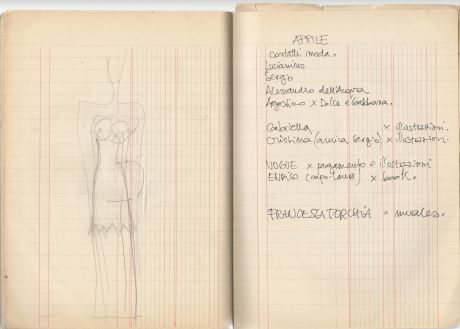 APRILE
contatti moda.
Lucianino
Sergio
Alessandro dell'Acqua
Agostino x Dolce e Gabbana.
Gabriella x illustrazioni.
Cristina (amica Sergio) x illustrazioni.
VOGUE x pagamento e illustrazioni
ENRICO (capo Laura) x book.
FRANCESCA TORCHIA = murales.